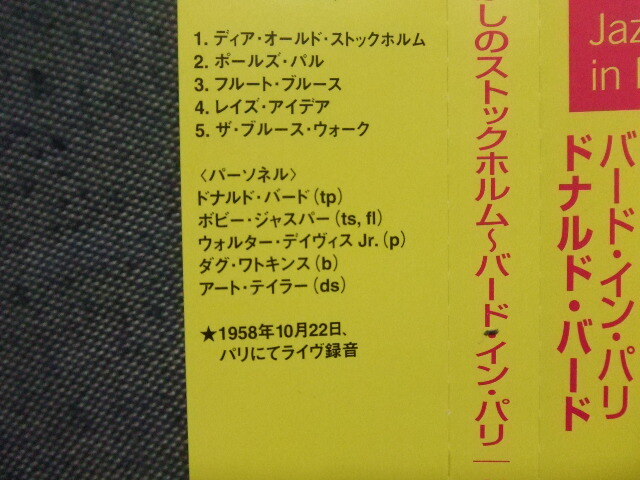 1. ディア・オールド・ストックホルム
2. ポールズ・パル
3. フルート・ブルース
4. レイズ・アイデア
5. ザ・ブルース・ウォーク
〈パーソネル〉
ドナルド・バード(tp)
ボビー・ジャスパー(ts, fl)
ウォルター・デイヴィス Jr. (p)
ダグ・ワトキンス(b)
アート・テイラー(ds)
★1958年10月22日、
パリにてライヴ録音
しのストックホルム〜バード・イン・パリ
Jaz
in
バード・イン・パリ
ドナルド・バード